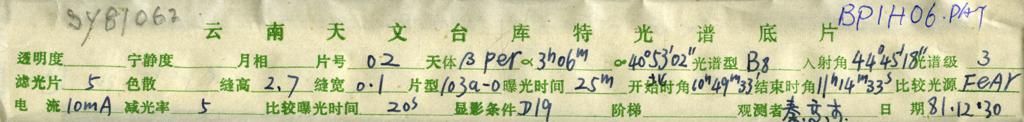 SY81062 BP1H06.DAT
云南天文台库特光谱底片
透明度 宁静度 月相 片号 02 天体 β per α 3h06m 40°53′02″ 光谱型 B8 入射角 44°45′18″ 光谱级 3
滤光片 5 色散 缝高 2.7 缝宽 0.1 片型 103a-0 曝光时间 25m 开始时角 10h49m33s 结束时角 11h14m33s 比较光源 FeAr
电流 10mA 减光率 5 比较曝光时间 20s 显影条件 D19 阶梯 观测者 日期 81.12.30